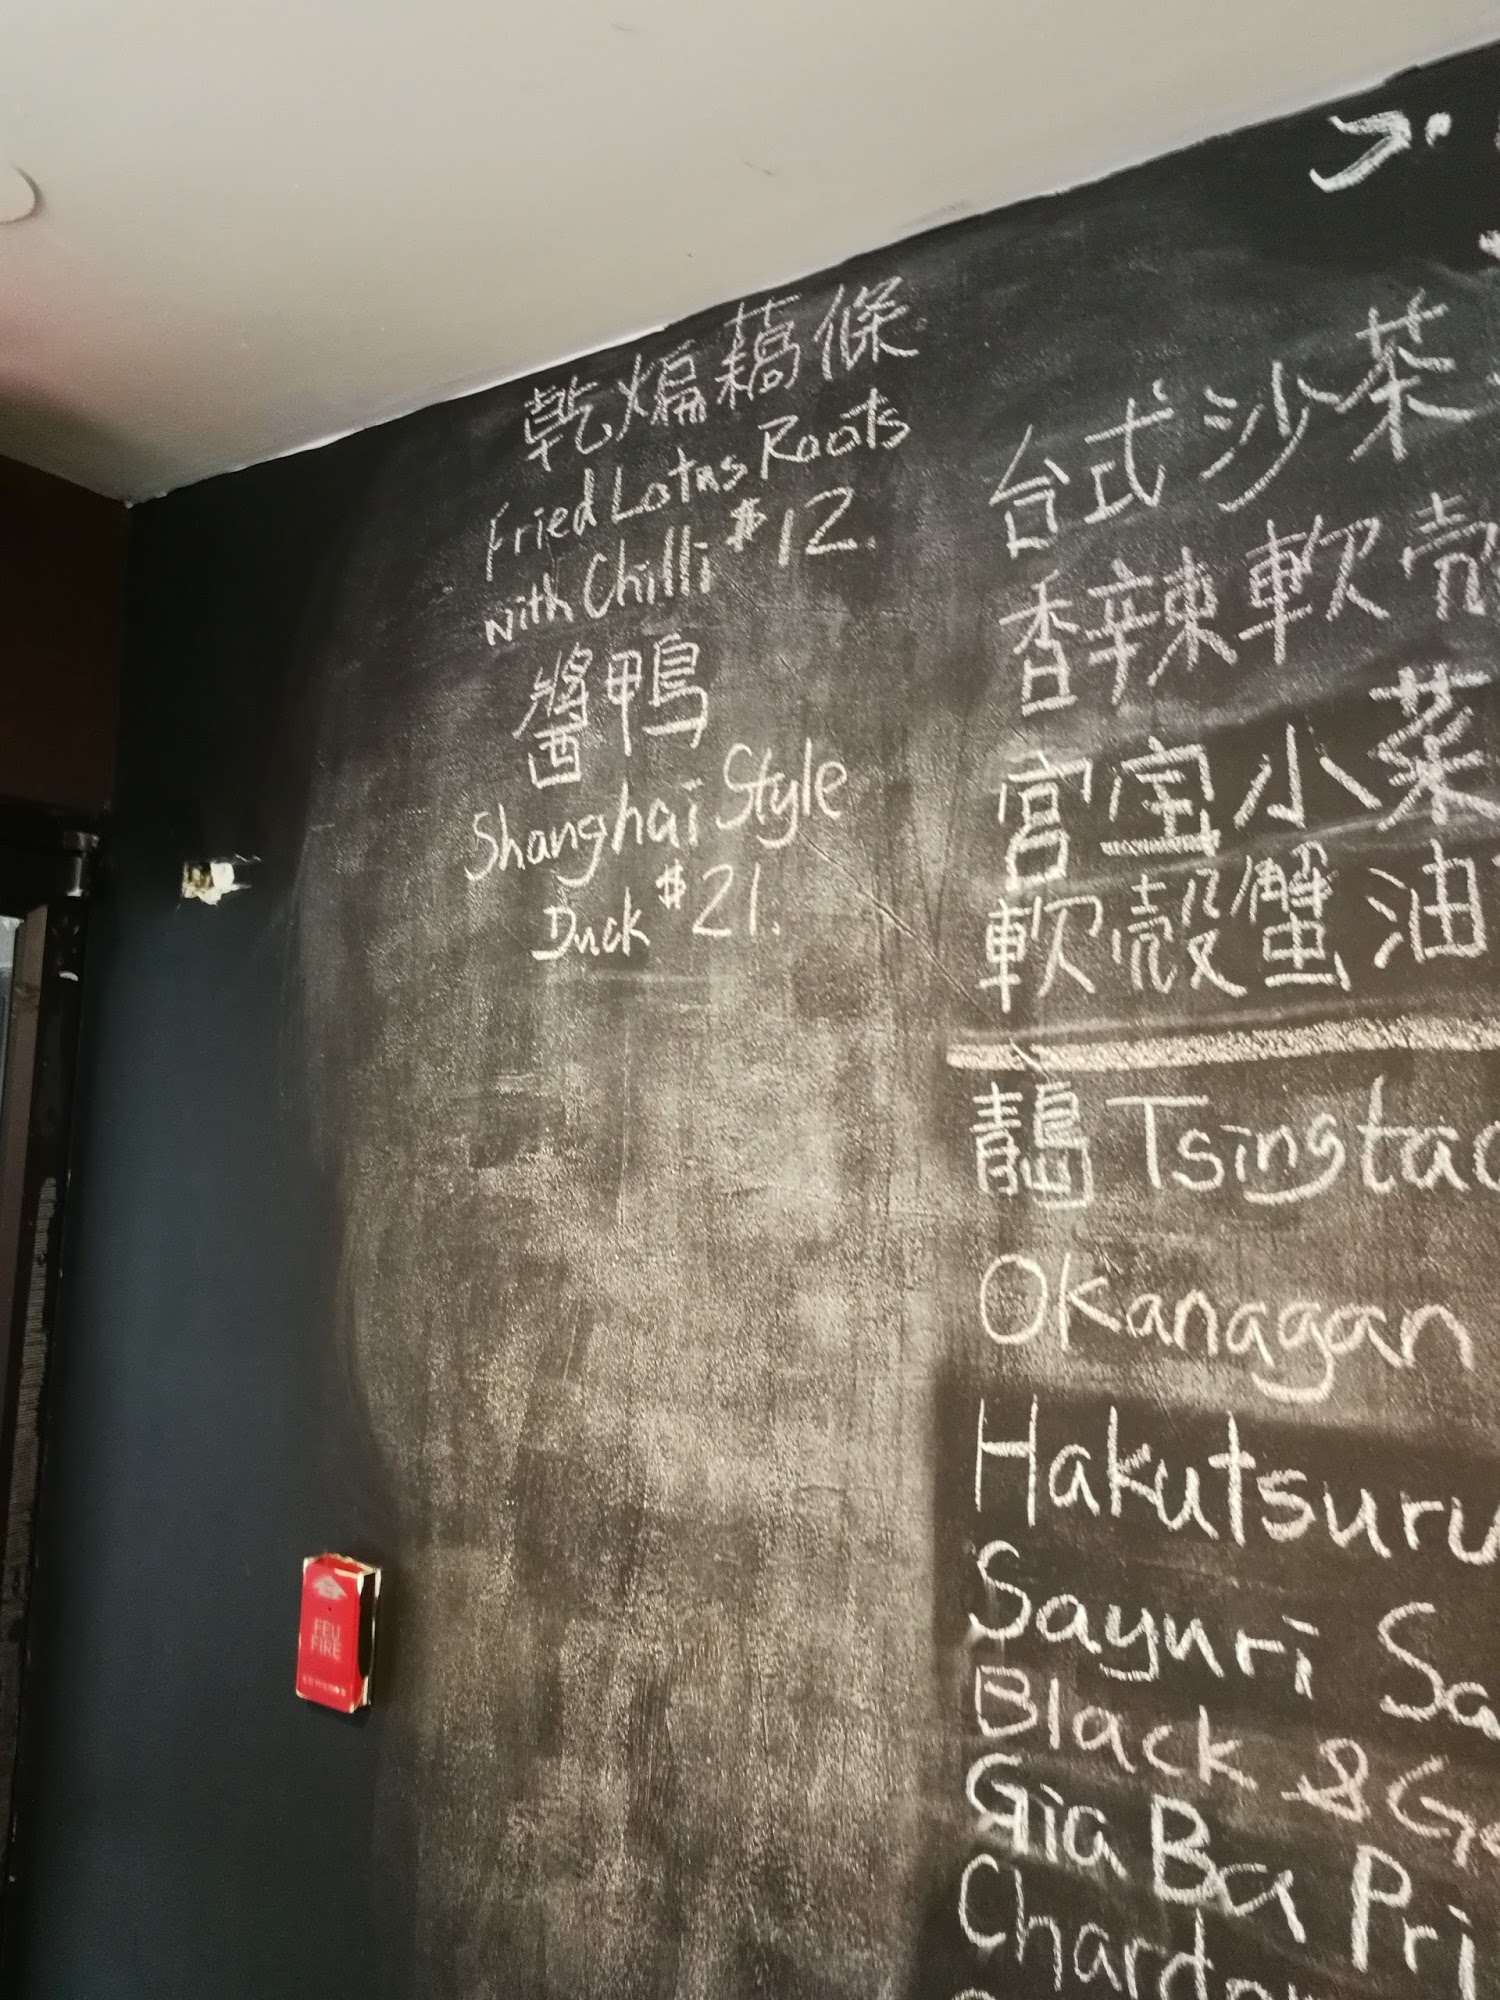 乾煸藕條
Fried Lotus Roots
with Chilli $12.
醬鴨
Shanghai Style
Duck $21.
台式沙茶
香辣軟殼
宮宝小菜
軟殼蟹油
Tsingtao
Okanagan
Hakutsuru
Sayuri Sa
Black & G
Gia Ba Pri
Chardon
FEU
FIRE
EDWARDS